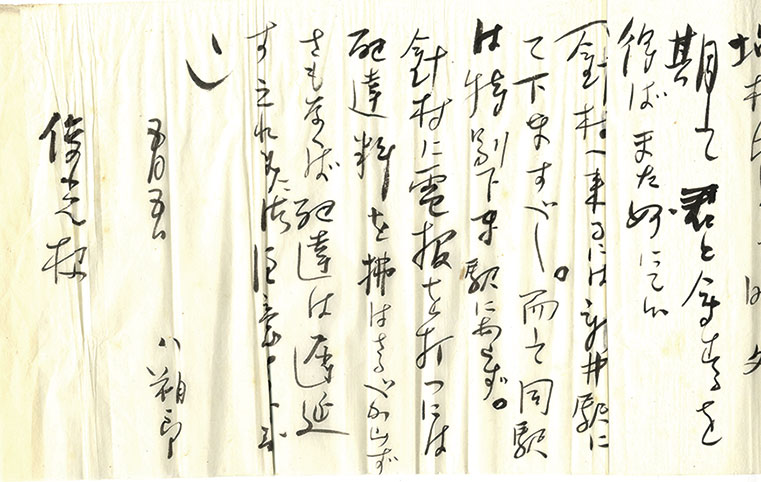 期して君と会するを
得ばまた妙にて候
（針村へ来るには新井駅に
て下車すべし。而して同駅
は特別下車駅にあらず。
針村に電報を打つには
配達料を拂はざるべからず
さもなくば配達は遅延
す之れまた御注意
）
五月五日
八朔郎
様